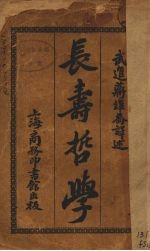 武進蔣維喬詳述
長壽哲學
上海商務印書館出版
131